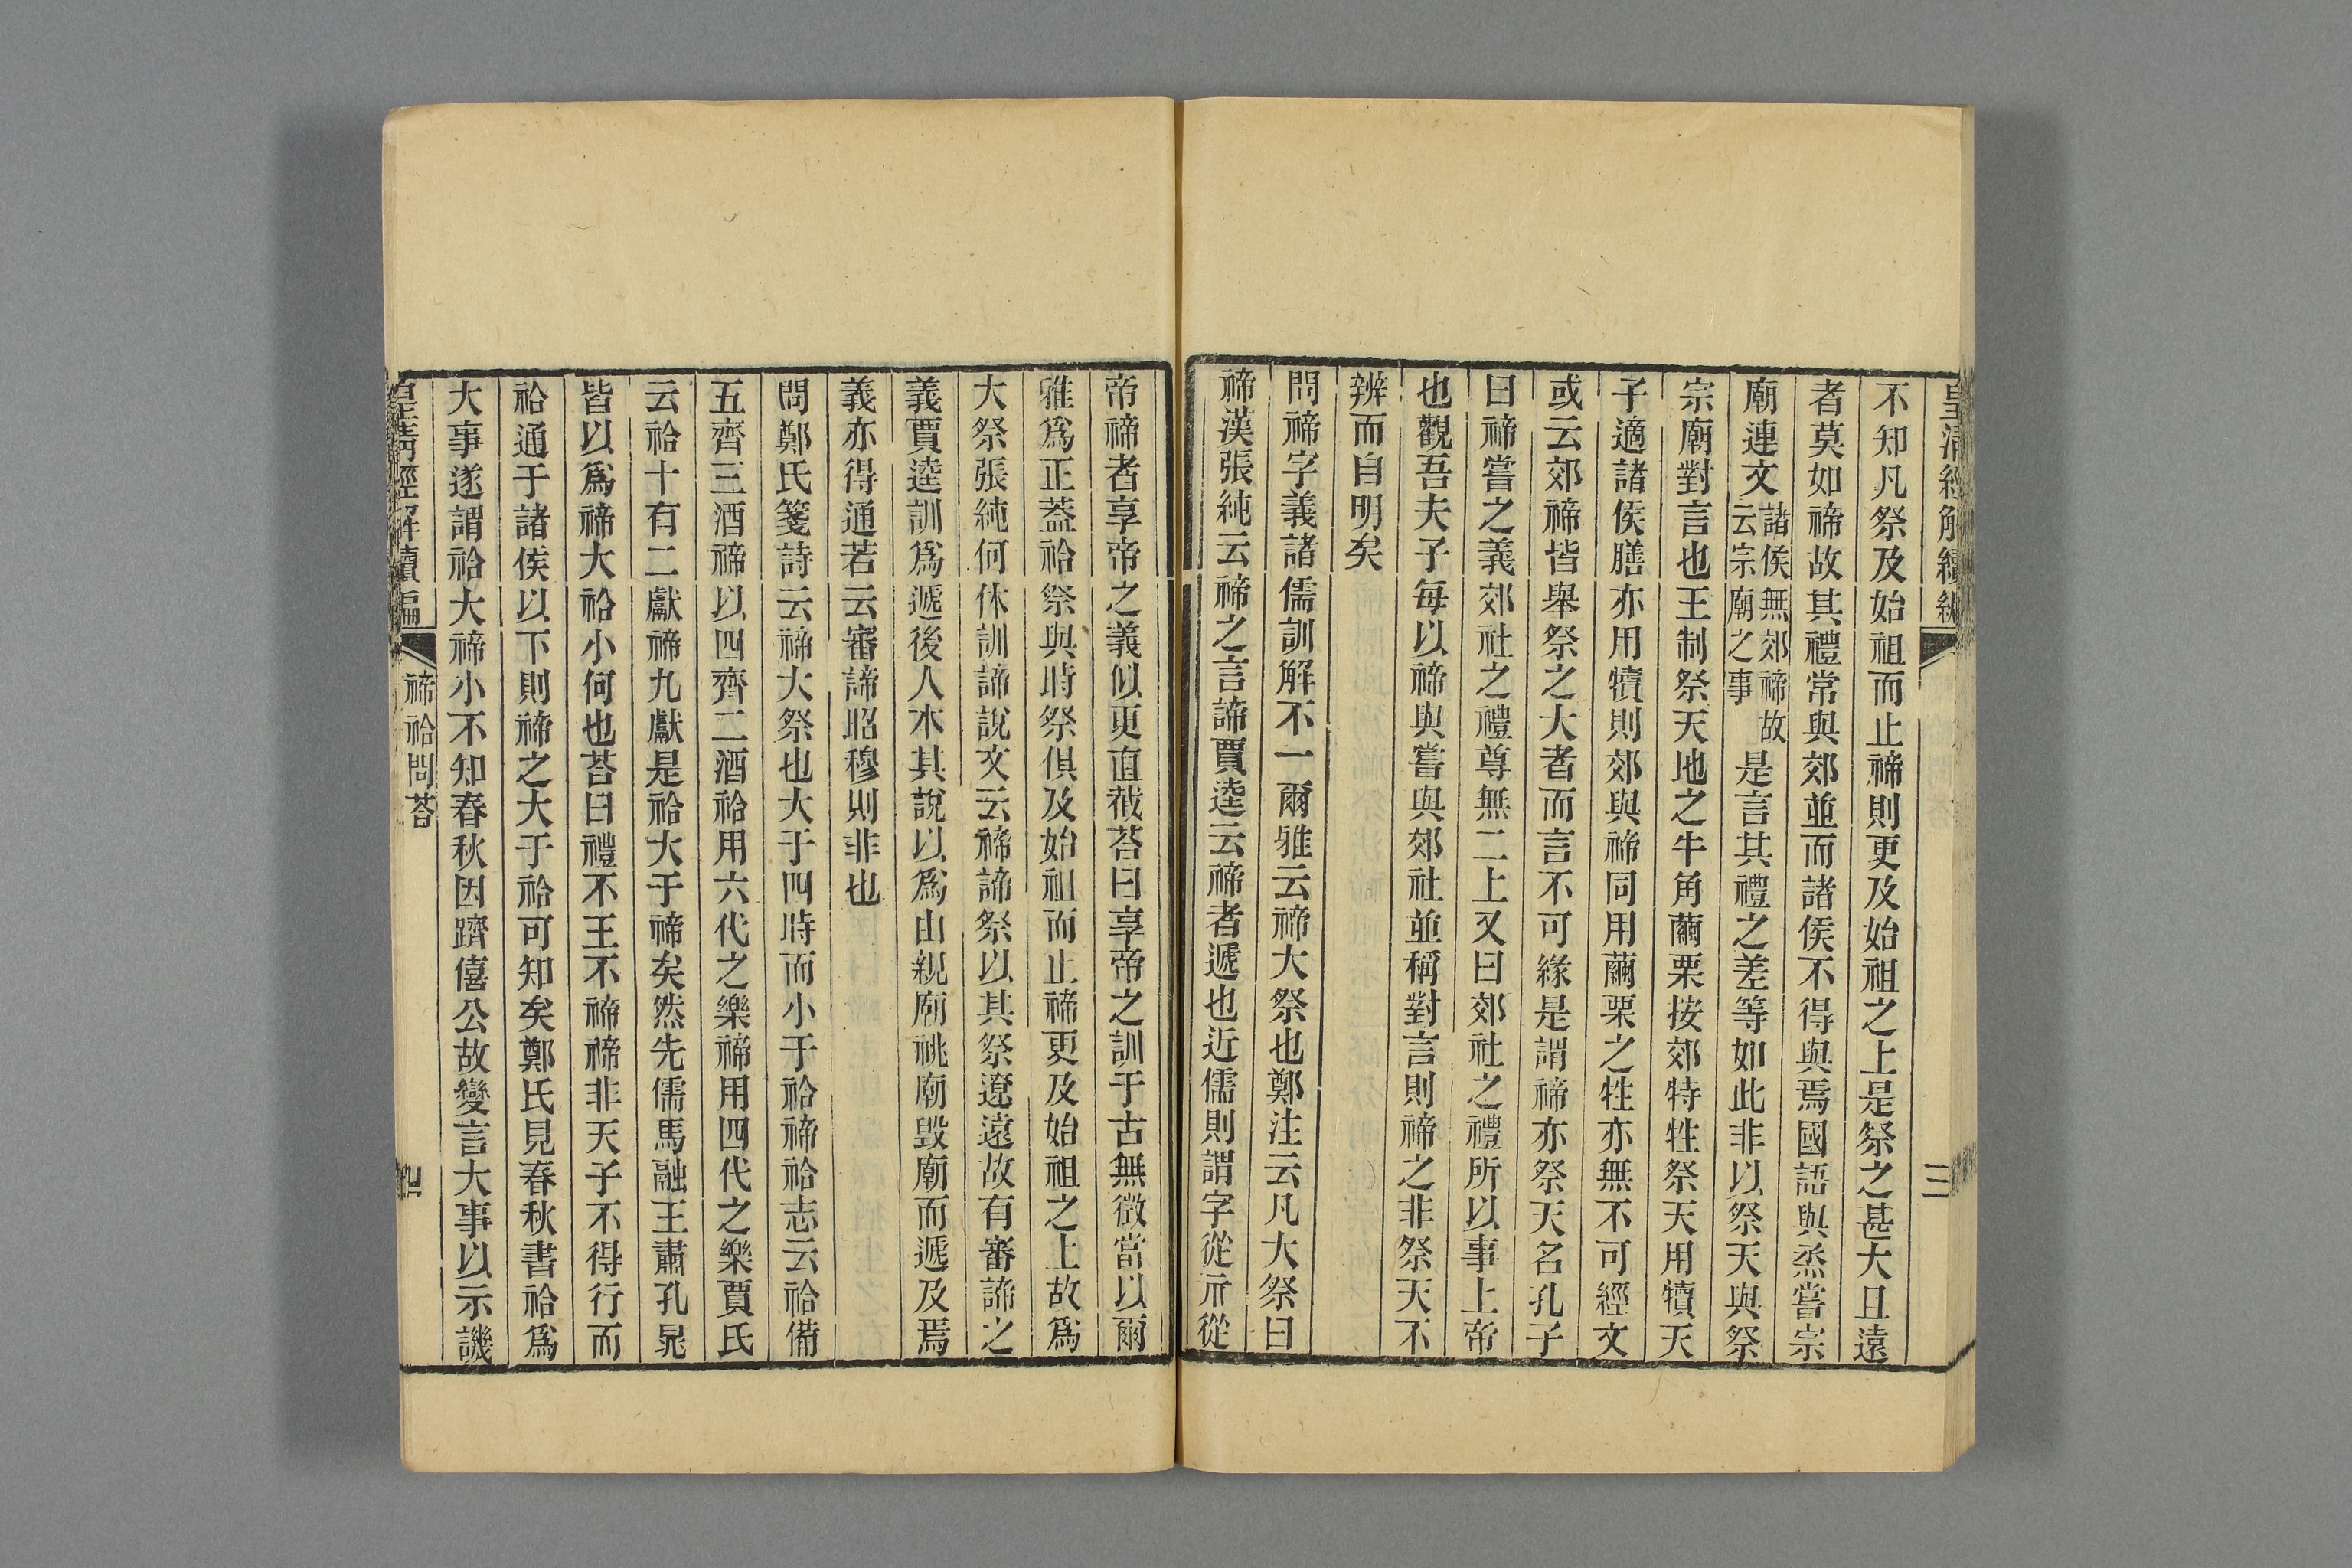 皇清經解續編
三
不知凡祭及始祖而止禘則更及始祖之上是祭之甚大且遠
者莫如禘故其禮常與郊並而諸侯不得與焉國語與烝嘗宗
廟連文諸侯無郊禘故云宗廟之事是言其禮之差等如此非以祭天與祭
宗廟對言也王制祭天地之牛角繭栗按郊特牲祭天用犢天
子適諸侯膳亦用犢則郊與禘同用繭栗之牲亦無不可經文
或云郊禘皆舉祭之大者而言不可緣是謂禘亦祭天名孔子
曰禘嘗之義郊社之禮尊無二上又曰郊社之禮所以事上帝
也觀吾夫子每以禘與嘗與郊社並稱對言則禘之非祭天不
辨而自明矣
問禘字義諸儒訓解不一爾雅云禘大祭也鄭注云凡大祭曰
禘漢張純云禘之言諦賈逵云禘者遞也近儒則謂字從示從
帝禘者享帝之義似更直截荅曰享帝之訓于古無徵當以爾
雅爲正蓋祫祭與時祭俱及始祖而止禘更及始祖之上故爲
大祭張純何休訓諦說文云禘諦祭以其祭遼遠故有審諦之
義賈逵訓爲遞後人本其說以爲由親廟祧廟毀廟而遞及焉
義亦得通若云審諦昭穆則非也
問鄭氏箋詩云禘大祭也大于四時而小于祫禘祫志云祫備
五齊三酒禘以四齊二酒祫用六代之樂禘用四代之樂賈氏
云祫十有二獻禘九獻是祫大于禘矣然先儒馬融王肅孔晁
皆以爲禘大祫小何也荅曰禮不王不禘禘非天子不得行而
祫通于諸侯以下則禘之大于祫可知矣鄭氏見春秋書祫爲
大事遂謂祫大禘小不知春秋因躋僖公故變言大事以示譏
皇清經解續編
禘祫問荅
四